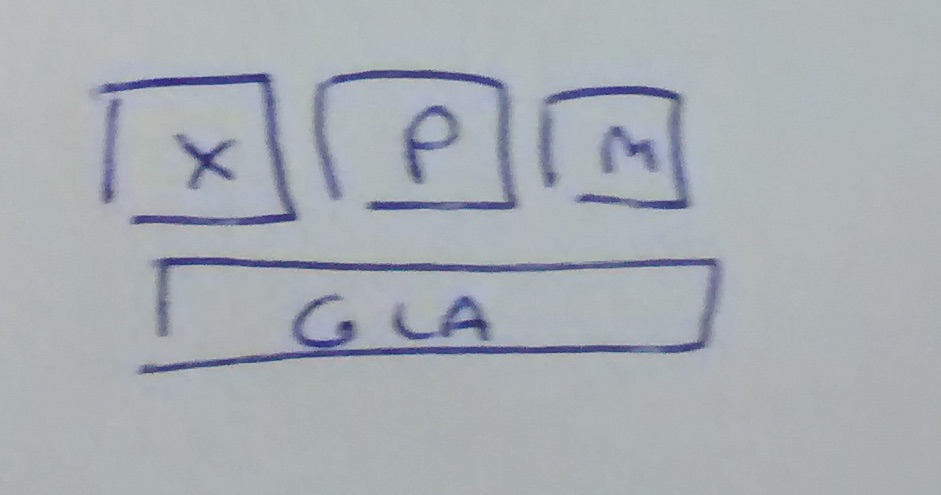 X P M
GLA